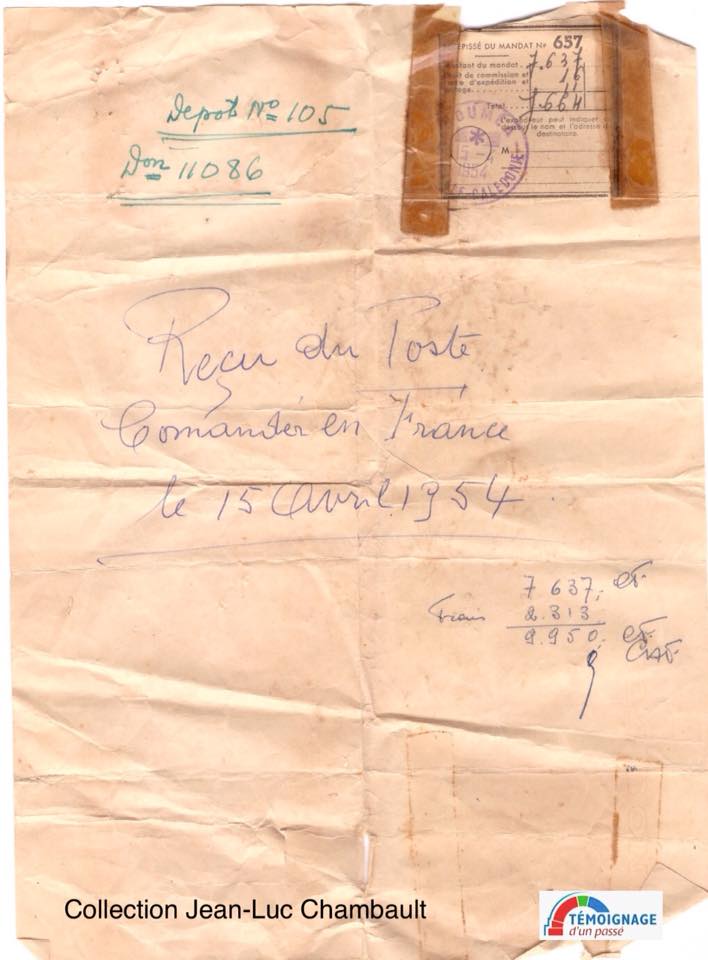 Depot No 105
Don 11086
ÉPISSÉ DU MANDAT No 657
du mandat. 7.637
de commission et 16
d'expédition et 11
Total 7.664
L'expéditeur peut indiquer
le nom et l'adresse
destinataire.
M
1954
CALÉDONIE
Reçu du Poste
Comander en France
le 15 Avril 1954.
7 637,
Frais 2.313
9.950,
Collection Jean-Luc Chambault
TÉMOIGNAGE
d'un passé